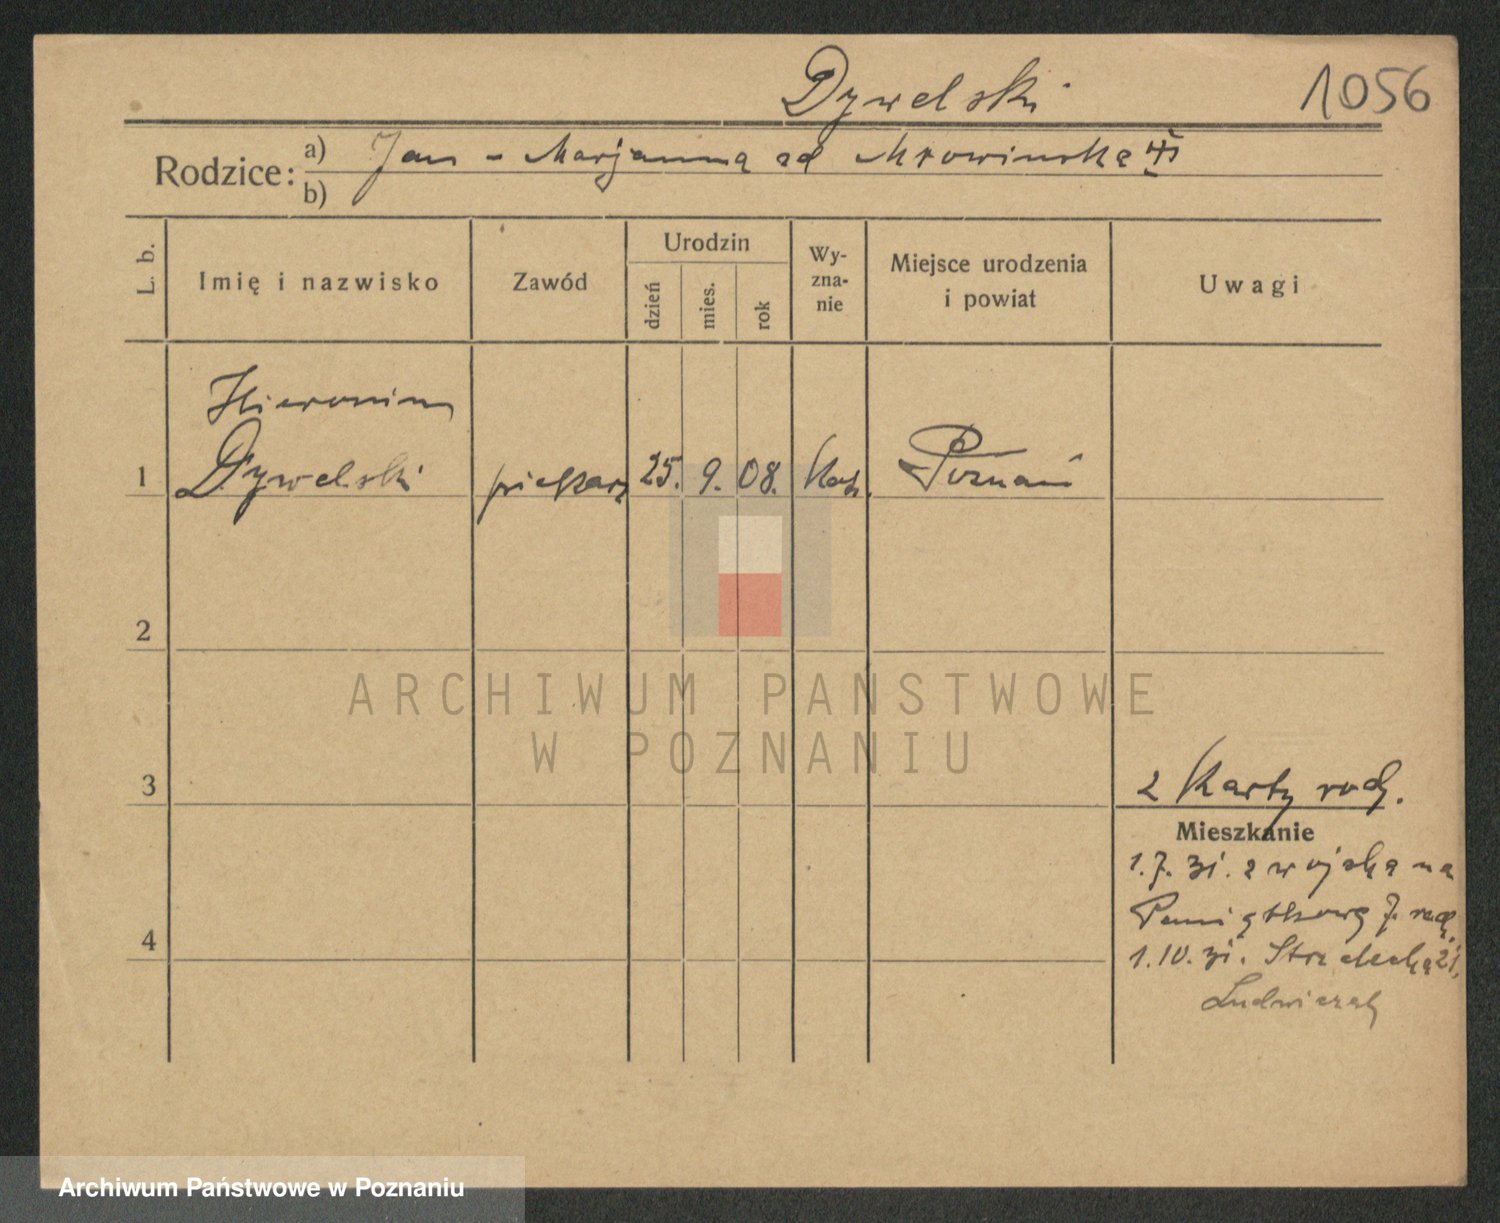 Dywelski
1056
Rodzice:
a) Jan - Marjanna zd Mrowinska
b)
L. b.
Imię i nazwisko
Zawód
Urodzin
dzień
mies.
rok
Wy-
zna-
nie
Miejsce urodzenia
i powiat
Uwagi
Hieronim
1 Dywelski piekarz 25. 9. 08. Kat. Poznań
2
ARCHIWUM PAŃSTWOWE
W POZNANIU
3
z Karty rodz.
Mieszkanie
1.7.31. z wojska na
Pamiątkową 7. rodz.
4
1.10.31. Strzelecka 21,
Ludwiczak
Archiwum Państwowe w Poznaniu